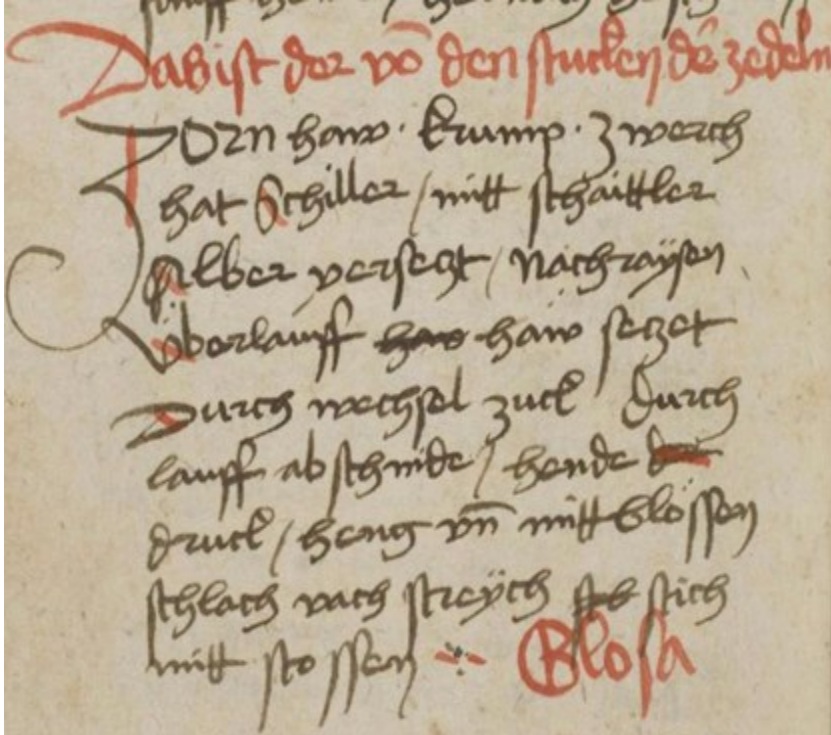 Das ist der vō den stucken dē zedeln
Zorn haw · krump · zwerch
hat Schiller / mitt schaittler
Alber versetzt / Nachraÿsen
Überlauff haw setzet
Durch wechsel zuck Durch
lauff abschnide / hende
druck / heng vn̄ mitt blössen
schlach vach streÿch stich
mitt stossen
Glosa